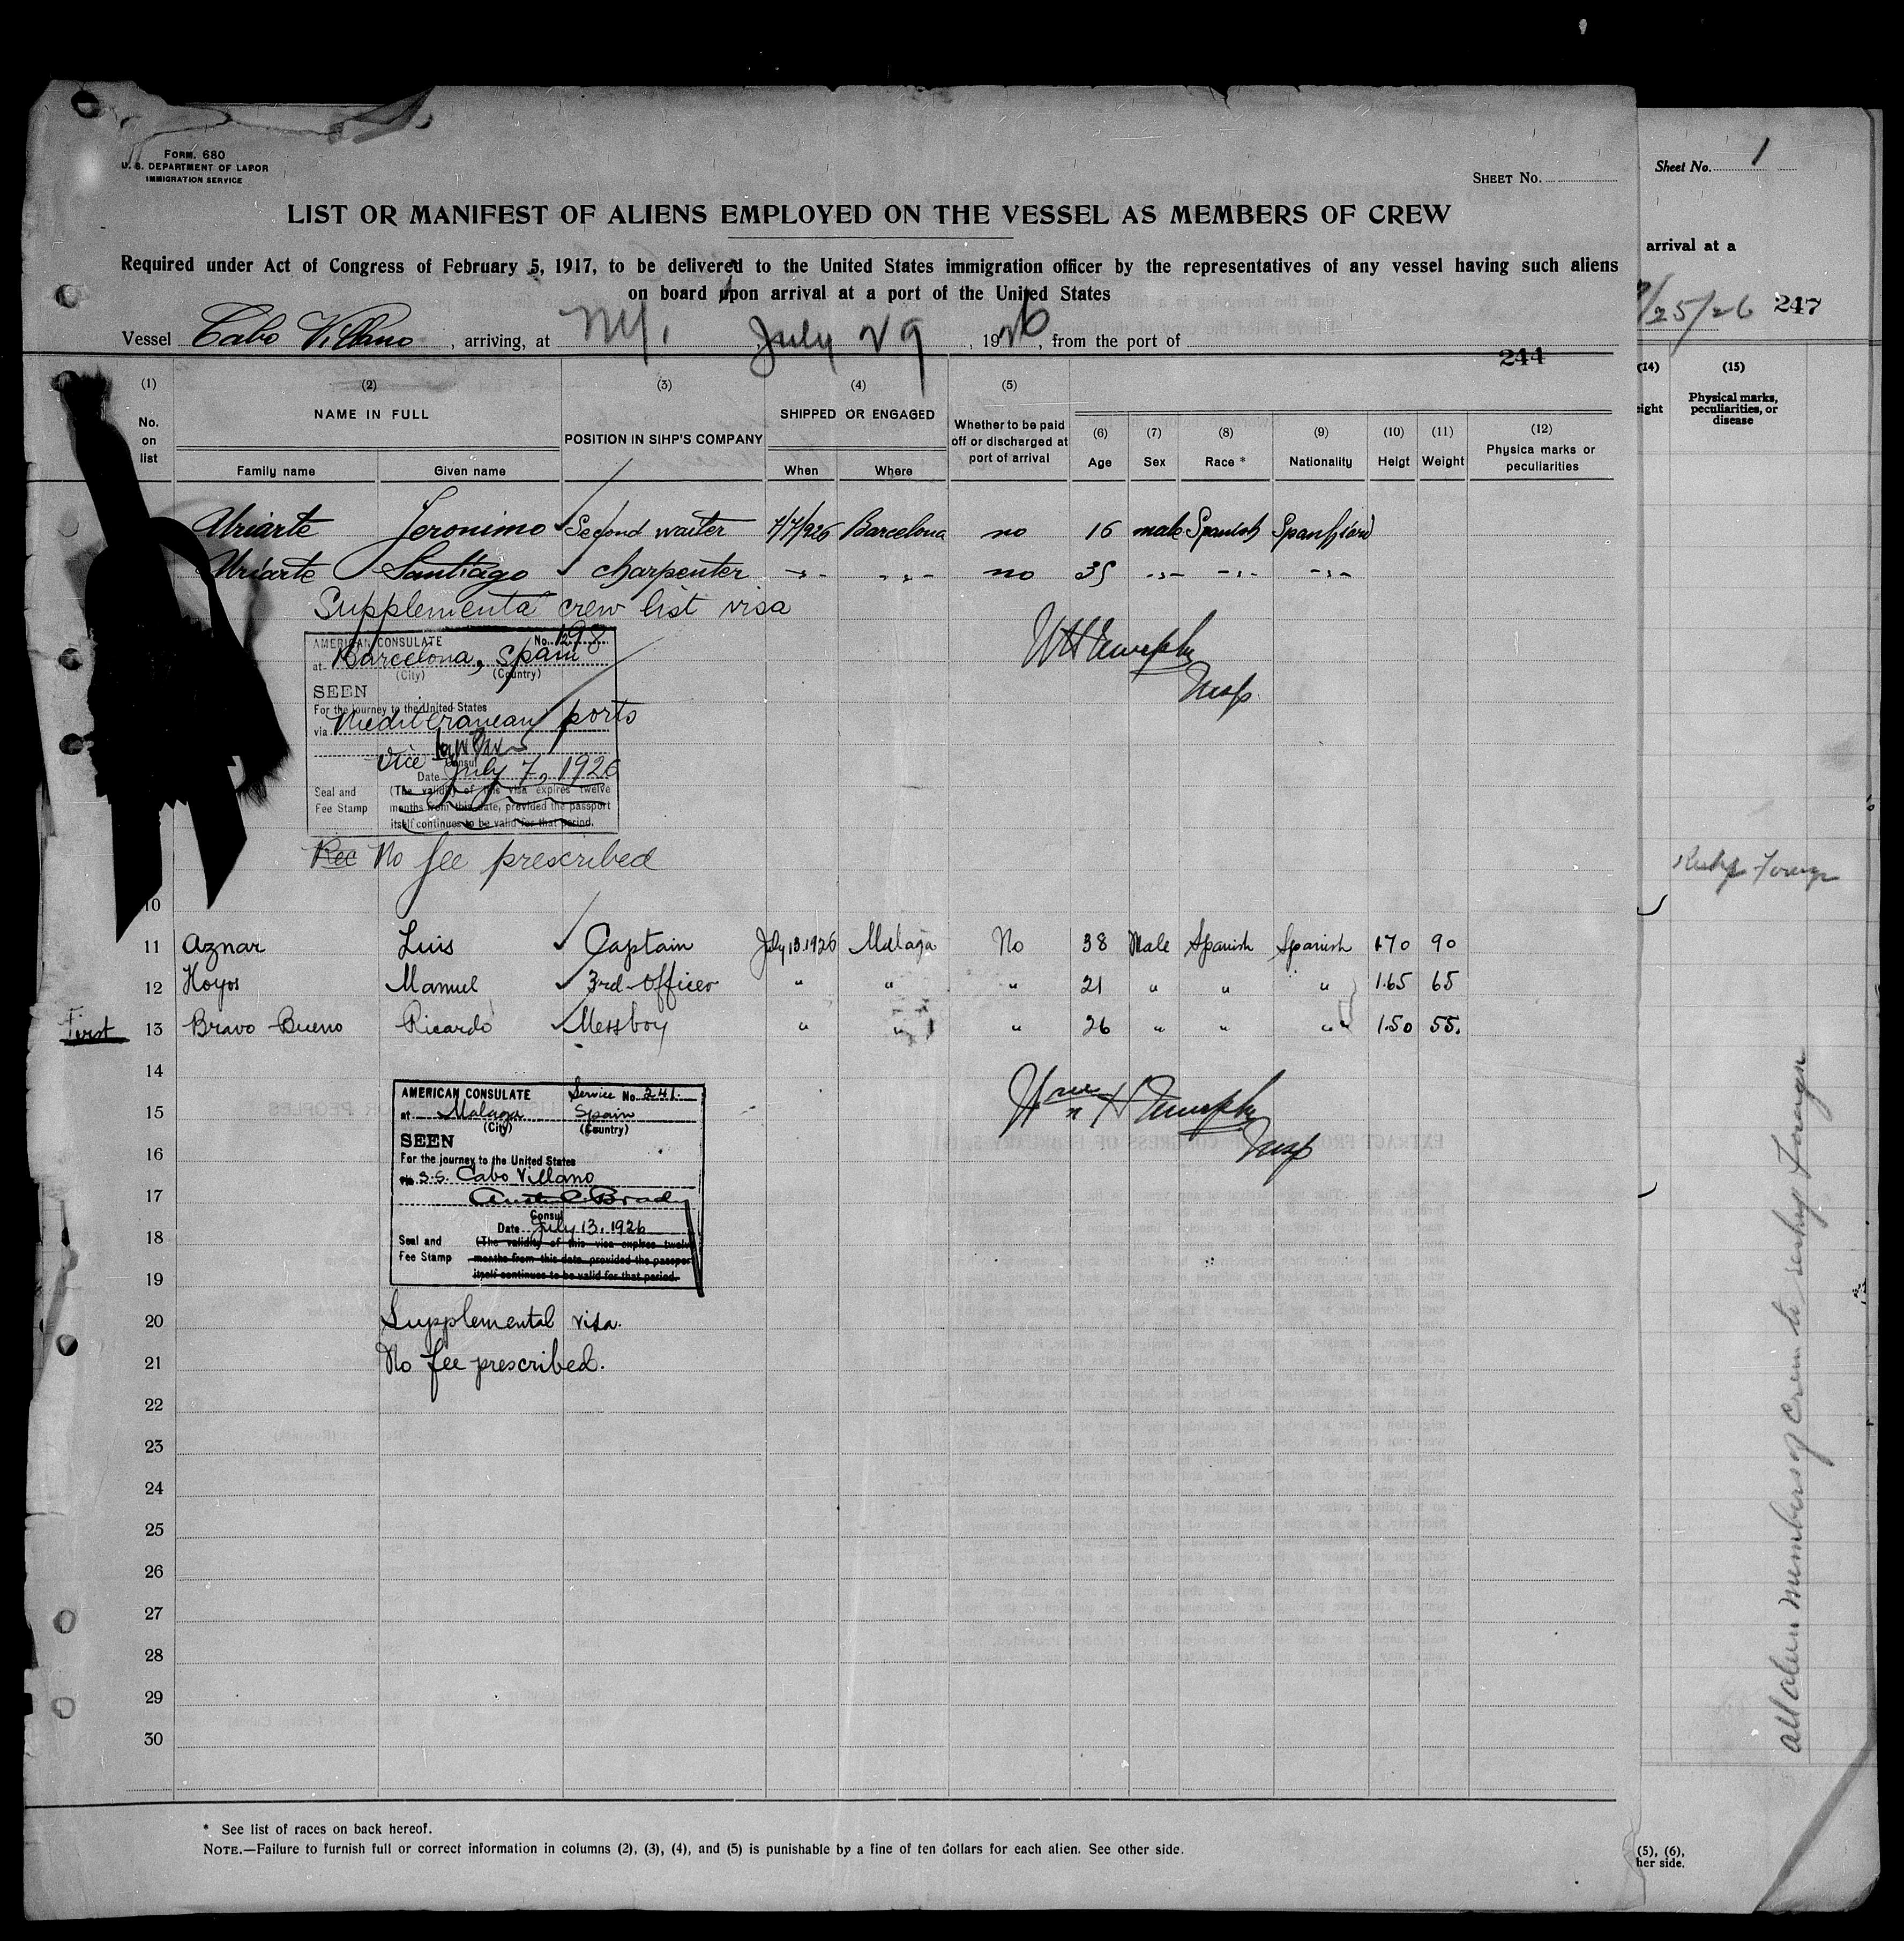 FORM. 680
U. S. DEPARTMENT OF LABOR
IMMIGRATION SERVICE
SHEET No.
LIST OR MANIFEST OF ALIENS EMPLOYED ON THE VESSEL AS MEMBERS OF CREW
Required under Act of Congress of February 5, 1917, to be delivered to the United States immigration officer by the representatives of any vessel having such aliens
on board upon arrival at a port of the United States
Vessel Cabo Villano, arriving, at NY. July 29, 1926, from the port of
244
(1) (2) (3) (4) (5) (6) (7) (8) (9) (10) (11) (12)
No. on list
NAME IN FULL
Family name Given name
POSITION IN SIHP'S COMPANY
SHIPPED OR ENGAGED
When Where
Whether to be paid off or discharged at port of arrival
Age Sex Race * Nationality Helgt Weight Physica marks or peculiarities
Uriarte Jeronimo Second waiter 7/7/926 Barcelona no 16 male Spanish
Uriarte Santiago charpenter -〃- -〃- no 35 -〃- -〃- -〃-
Supplemental crew list visa
AMERICAN CONSULATE No. 198
at Barcelona, Spain
(City) (Country)
SEEN
For the journey to the United States
via Mediterranean ports
Vice Consul
Date July 7, 1926
Seal and Fee Stamp
(The validity of this visa expires twelve
months from this date, provided the passport
itself continues to be valid for that period.
Rec No fee prescribed
WH Murphy
Insp
10
11 Aznar Luis Captain July 13.1926 Malaga No 38 Male Spanish Spanish 1.70 90
12 Hoyos Manuel 3rd officer " " " 21 " " " 1.65 65
First 13 Bravo Bueno Ricardo Messboy " " " 26 " " " 1.50 55.
14
AMERICAN CONSULATE Service No. 241.
15
at Malaga Spain
(City) (Country)
SEEN
16
For the journey to the United States
S.S. Cabo Villano
17
Consul
Date July 13, 1926
18
Seal and Fee Stamp
(The validity of this visa expires twelve
months from this date, provided the passport
itself continues to be valid for that period.
19
H Murphy
Insp
20 Supplemental visa.
21 No fee prescribed.
22
23
24
25
26
27
28
29
30
* See list of races on back hereof.
NOTE.—Failure to furnish full or correct information in columns (2), (3), (4), and (5) is punishable by a fine of ten dollars for each alien. See other side.
Sheet No. 1
arrival at a
/25/26 247
(14) (15)
eight
Physical marks,
peculiarities, or
disease
Reship Foreign
All alien members of crew to reship foreign
(5), (6),
her side.